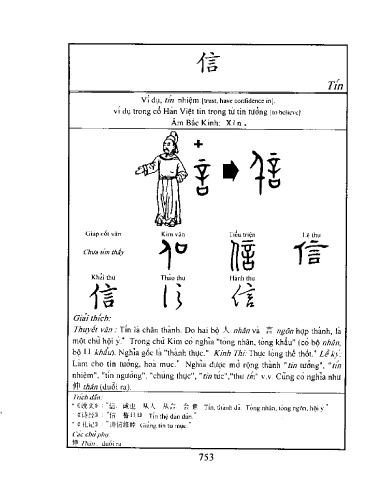 信
Tín
Ví dụ, tín nhiệm (trust, have confidence in).
ví dụ trong cổ Hán Việt tin trong từ tin tưởng (to believe)
Âm Bắc Kinh: Xìn.
+
Giáp cốt văn Kim văn Tiểu triện Lệ thư
Chưa tìm thấy
Khải thư Thảo thư Hành thư
信 信
Giải thích:
Thuyết văn: Tín là chân thành. Do hai bộ 人 nhân và 言 ngôn hợp thành, là
một chữ hội ý." Trong chữ Kim có nghĩa "tòng nhân, tòng khẩu" (có bộ nhân,
bộ 口 khẩu). Nghĩa gốc là "thành thực." Kinh Thi: Thực lòng thề thốt." Lễ ký:
Làm cho tin tưởng, hoà mục." Nghĩa được mở rộng thành "tin tưởng", "tín
nhiệm", "tín ngưỡng", "chứng thực", "tin tức", "thư tín" v.v. Cũng có nghĩa như
伸 thân (duỗi ra).
Trích dẫn:
《说文》: "信, 诚也 从人 从言 会意 Tín, thành dã. Tòng nhân, tòng ngôn, hội ý."
《诗经》: "信誓旦旦 Tín thệ đán đán."
《礼记》: "讲信修睦 Giảng tín tu mục."
Các chú phụ
伸 Thân, duỗi ra
753